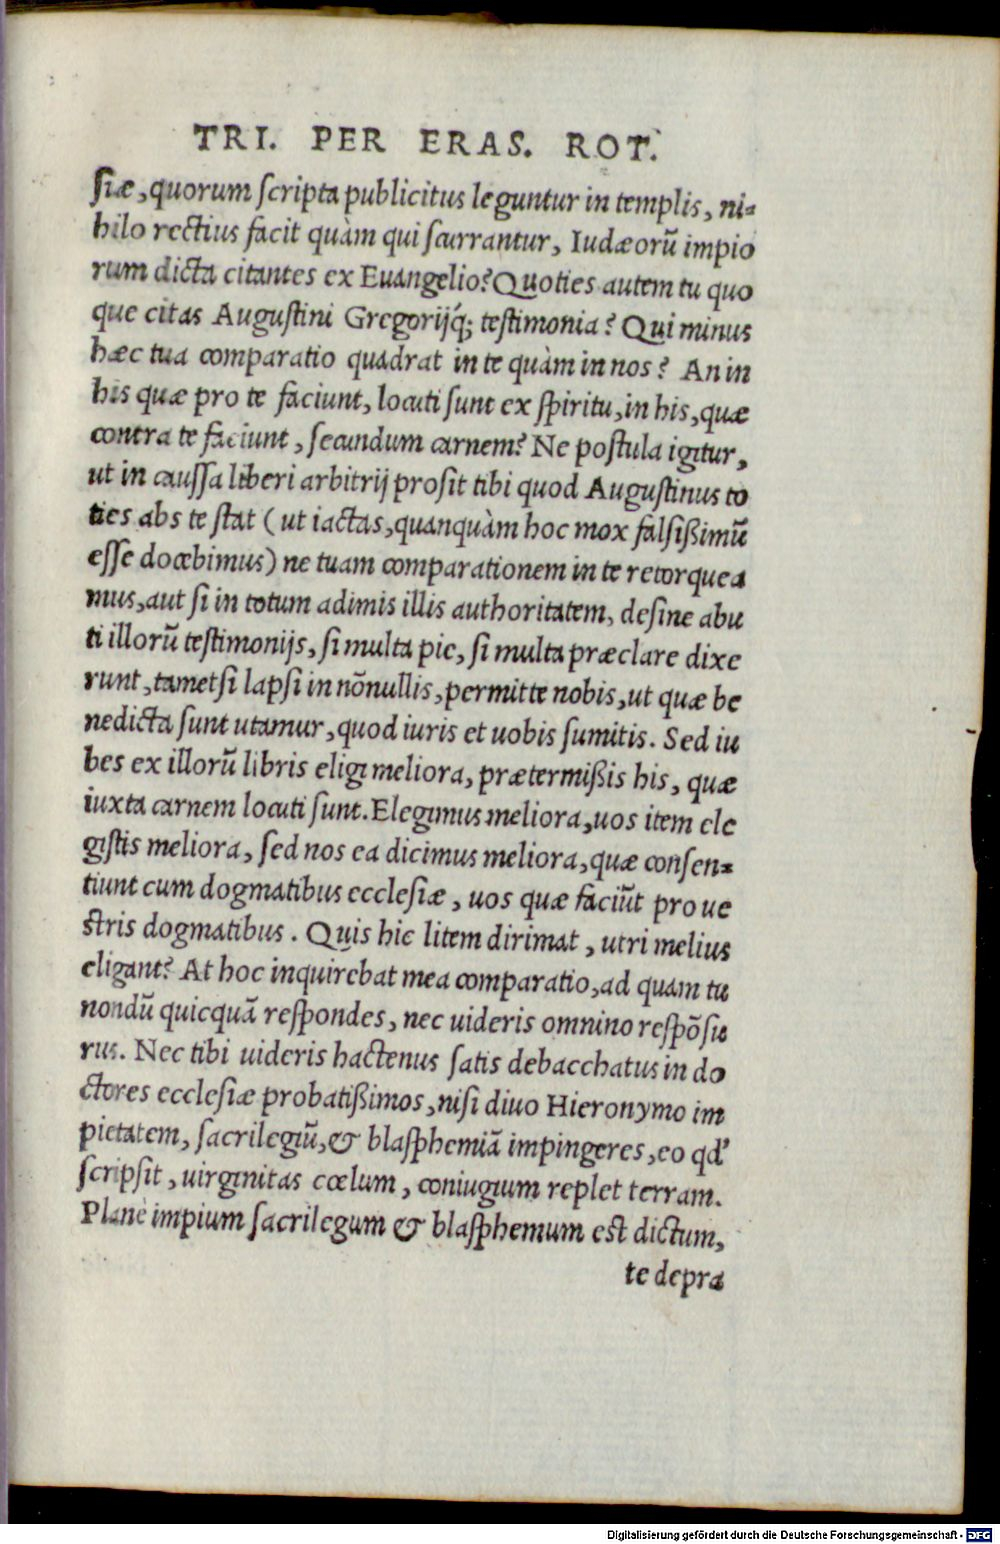 TRI. PER ERAS. ROT.
ſiæ, quorum ſcripta publicitus leguntur in templis, ni=
hilo rectius facit quàm qui ſcurrantur, Iudæorũ impio
rum dicta citantes ex Euangelio? Quoties autem tu quo
que citas Auguſtini Gregorijq́; teſtimonia? Qui minus
hæc tua comparatio quadrat in te quàm in nos? An in
his quæ pro te faciunt, locuti ſunt ex ſpiritu, in his, quæ
contra te faciunt, ſecundum carnem? Ne poſtula igitur,
ut in cauſſa liberi arbitrij proſit tibi quod Auguſtinus to
ties abs te ſtat (ut iactas, quanquàm hoc mox falſiſſimũ
eſſe docebimus) ne tuam comparationem in te retorquea
mus, aut ſi in totum adimis illis authoritatem, deſine abu
ti illorũ teſtimonijs, ſi multa pie, ſi multa præclare dixe
runt, tametſi lapſi in nõnullis, permitte nobis, ut quæ be
nedicta ſunt utamur, quod iuris et uobis ſumitis. Sed iu
bes ex illorũ libris eligi meliora, prætermißis his, quæ
iuxta carnem locuti ſunt. Elegimus meliora, uos item ele
giſtis meliora, ſed nos ea dicimus meliora, quæ conſen=
tiunt cum dogmatibus eccleſiæ, uos quæ faciũt pro ue
ſtris dogmatibus. Quis hic litem dirimat, utri melius
eligant? At hoc inquirebat mea comparatio, ad quam tu
nondũ quicquã reſpondes, nec uideris omnino reſpõſu
rus. Nec tibi uideris hactenus ſatis debacchatus in do
ctores eccleſiæ probatißimos, niſi diuo Hieronymo im
pietatem, ſacrilegiũ, & blaſphemiã impingeres, eo qd'
ſcripſit, uirginitas cœlum, coniugium replet terram.
Planè impium ſacrilegum & blaſphemum eſt dictum,
te depra
Digitalisierung gefördert durch die Deutsche Forschungsgemeinschaft - DFG